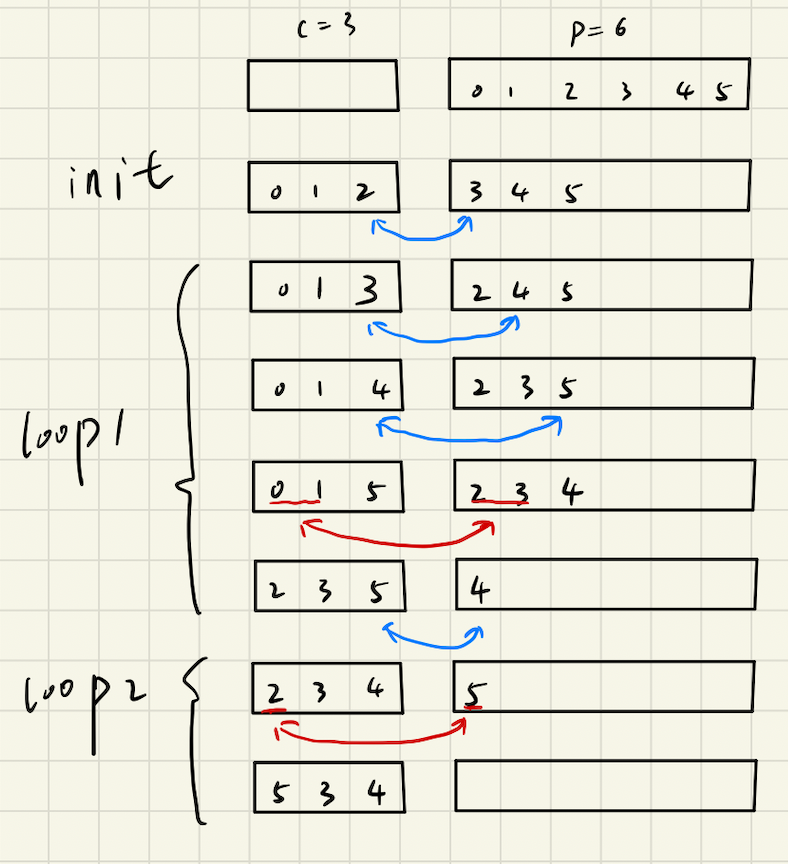 c = 3 p = 6
0 1 2 3 4 5
init 0 1 2 3 4 5
0 1 3 2 4 5
0 1 4 2 3 5
loop1
0 1 5 2 3 4
2 3 5 4
loop2 2 3 4 5
5 3 4